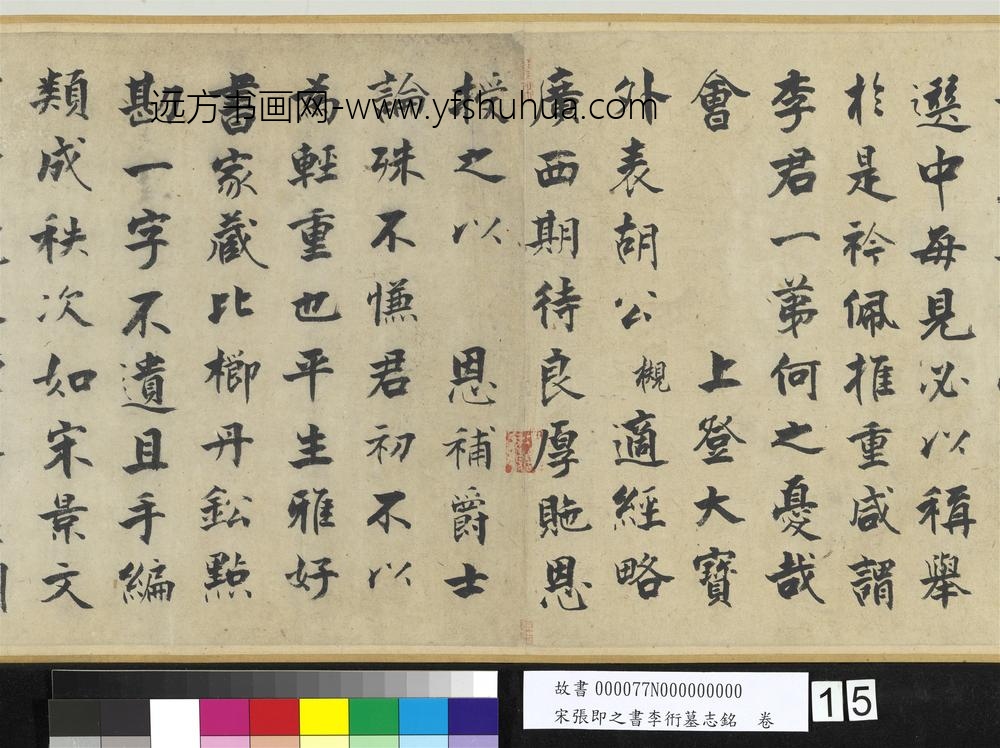 選中每見必以稱舉
於是衿佩推重咸謂
李君一第何之憂哉
會 上登大寶
外表胡公 槻 適經略
廣西期待良厚貤恩
授之以 恩補爵士
論殊不慊君初不以
為輕重也平生雅好
書家藏比櫛丹鉛點
勘一字不遺且手編
類成秩次如宋景文
远方书画网-www.yfshuhua.com
故書 000077N000000000
宋張即之書李衎墓志銘 卷
15